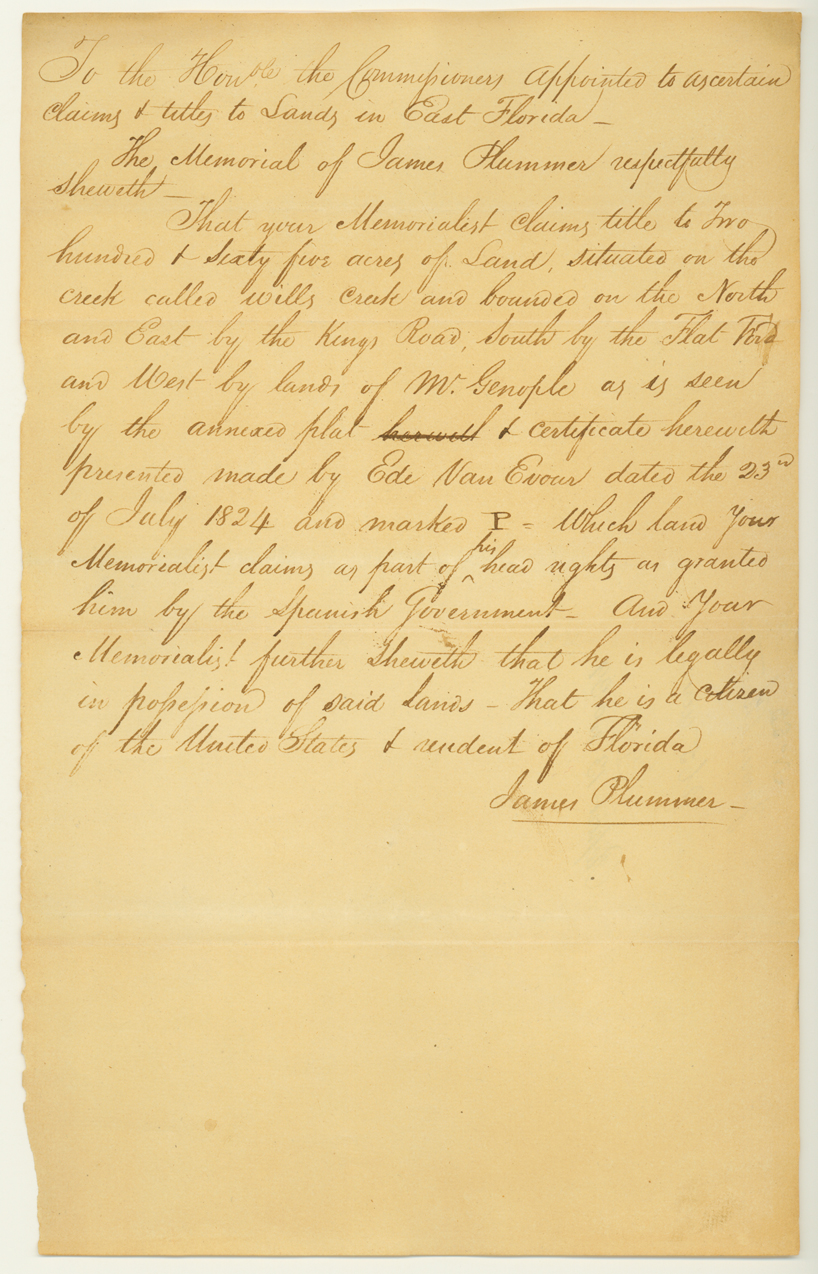 To the Honble. the Commissioners appointed to ascertain
claims & titles to Lands in East Florida –
The Memorial of James Plummer respectfully
Sheweth –
That your Memorialist claims title to Two
hundred & Sixty five acres of Land, situated on the
creek called wills Creek and bounded on the North
and East by the Kings Road, South by the Flat Ford
and West by lands of Mr. Genople as is seen
by the annexed plat herewith & certificate herewith
presented made by Ede Van Evour dated the 23rd
of July 1824 and marked P = Which land Your
Memorialist claims as part of his head rights as granted
him by the Spanish Government – And Your
Memorialist further Sheweth that he is legally
in possession of said lands – That he is a Citizen
of the United States & resident of Florida
James Plummer –